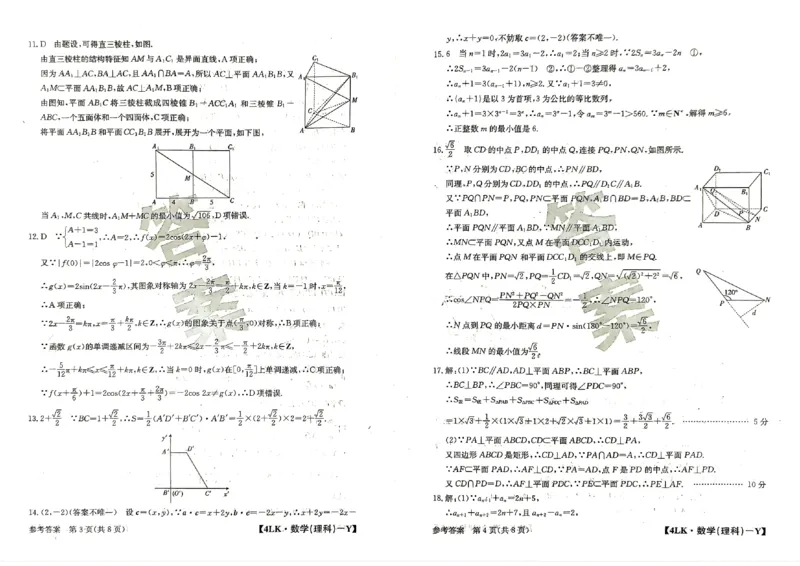 11. D　由题设,可得直三棱柱,如图.
由直三棱柱的结构特征知 AM 与 A₁C₁ 是异面直线,A 项正确;
因为 AA₁⊥AC,BA⊥AC,且 AA₁∩BA=A,所以 AC⊥平面 AA₁B₁B,又
A₁M⊂平面 AA₁B₁B,故 AC⊥A₁M,B 项正确;
由图知,平面 AB₁C 将三棱柱截成四棱锥 B₁-ACC₁A₁ 和三棱锥 B₁-
ABC,一个五面体和一个四面体,C 项正确;
将平面 AA₁B₁B 和平面 CC₁B₁B 展开,展开为一个平面,如下图,
C₁
A₁
B₁
M
C
A
B
A₁
B₁
C₁
5
M
A
4
B
5
C
当 A₁,M,C 共线时,A₁M+MC 的最小值为√106,D 项错误.
12. D　∵{A+1=3
A-1=1,∴A=2,∴f(x)=2cos(2x+φ)-1,
又∵|f(0)|=|2cos φ-1|=2,0<φ<π,∴φ=2π/3,
∴g(x)=2sin(2x-2/3π),其图象对称轴为 2x-2π/3=π/2+kπ,k∈Z,当 k=-1 时,x=π/12,
∴A 项正确;
∵2x-2π/3=kπ,x=π/3+kπ/2,k∈Z,∴g(x)的图象关于点(π/3,0)对称,∴B 项正确;
∵函数 g(x)的单调递减区间为-3π/2+2kπ≤2x-2π/3≤-π/2+2kπ,k∈Z,
∴-5/12π+kπ≤x≤π/12+kπ,k∈Z,∴当 k=0 时,g(x)在[0,π/12]上单调递减,∴C 项正确;
∵f(x+π/6)+1=2cos(2x+π/3+2π/3)=-2cos 2x≠g(x),∴D 项错误.
13. 2+√2/2　∵BC=1+√2/2,∴S=1/2(A′D′+B′C′)·A′B′=1/2×(2+√2/2)×2=2+√2/2.
y′
A′
D′
B′(O′)
C′
x′
14. (2,-2)(答案不唯一)　设 c=(x,y),∵a·c=x+2y,b·c=-2x-y,∴x+2y=-2x-
参考答案　第 3 页(共 8 页)
【4LK·数学(理科)—Y】
y,∴x+y=0,不妨取 c=(2,-2)(答案不唯一).
15. 6　当 n=1 时,2a₁=3a₁-2,∴a₁=2;当 n≥2 时,∵2Sₙ=3aₙ-2n　①,
∴2Sₙ₋₁=3aₙ₋₁-2(n-1)　②,∴①-②整理得 aₙ=3aₙ₋₁+2,
∴aₙ+1=3(aₙ₋₁+1),n≥2. 又∵a₁+1=3≠0,
∴{aₙ+1}是以 3 为首项,3 为公比的等比数列,
∴aₙ+1=3×3ⁿ⁻¹=3ⁿ,∴aₙ=3ⁿ-1,令 aₘ=3ᵐ-1>560. ∵m∈N*,解得 m≥6,
∴正整数 m 的最小值是 6.
16. √6/2　取 CD 的中点 P,DD₁ 的中点 Q,连接 PQ,PN,QN,如图所示.
∵P,N 分别为 CD,BC 的中点,∴PN∥BD,
同理,P,Q 分别为 CD,DD₁ 的中点,∴PQ∥D₁C∥A₁B.
又∵PQ∩PN=P,PQ,PN⊂平面 PQN,A₁B∩BD=B,A₁B,BD⊂
平面 A₁BD,
∴平面 PQN∥平面 A₁BD,∵MN∥平面 A₁BD,
∴MN⊂平面 PQN,又点 M 在平面 DCC₁D₁ 内运动,
∴点 M 在平面 PQN 和平面 DCC₁D₁ 的交线上,即 M∈PQ.
D₁
C₁
A₁
B₁
Q
D
P
C
N
A
B
在△PQN 中,PN=√2,PQ=1/2CD₁=√2,QN=√((√2)²+2²)=√6,
∴cos∠NPQ=(PN²+PQ²-QN²)/(2PQ×PN)=-1/2,∴∠NPQ=120°,
∴N 点到 PQ 的最小距离 d=PN·sin(180°-120°)=√6/2,
∴线段 MN 的最小值为√6/2.
Q
120°
P
N
d
17. 解:(1)∵BC∥AD,AD⊥平面 ABP,∴BC⊥平面 ABP,
∴BC⊥BP,∴∠PBC=90°,同理可得∠PDC=90°,
∴S表=S底+S△PAB+S△PBC+S△PDC+S△PAD
=1×√3+1/2×(1×√3+1×2+√2×√3+1×1)=3/2+3√3/2+√6/2. ………… 5 分
(2)∵PA⊥平面 ABCD,CD⊂平面 ABCD,∴CD⊥PA,
又四边形 ABCD 是矩形,∴CD⊥AD,∵PA∩AD=A,∴CD⊥平面 PAD.
∵AF⊂平面 PAD,∴AF⊥CD,∵PA=AD,点 F 是 PD 的中点,∴AF⊥PD.
又 CD∩PD=D,∴AF⊥平面 PDC,∵PE⊂平面 PDC,∴PE⊥AF. ………… 10 分
18. 解:(1)∵aₙ₊₁+aₙ=2n+5,
∴aₙ₊₁+aₙ₊₂=2n+7,且 aₙ₊₂-aₙ=2,
参考答案　第 4 页(共 8 页)
【4LK·数学(理科)—Y】
答案
答案